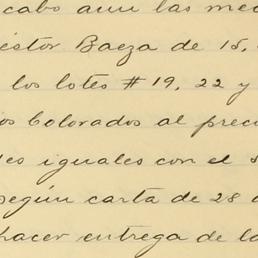 cabo aun las me
éstor Baeza de 15,
los lotes # 19, 22 y
os Colorados al prec
es iguales con el s
según carta de 28
hacer entrega de la